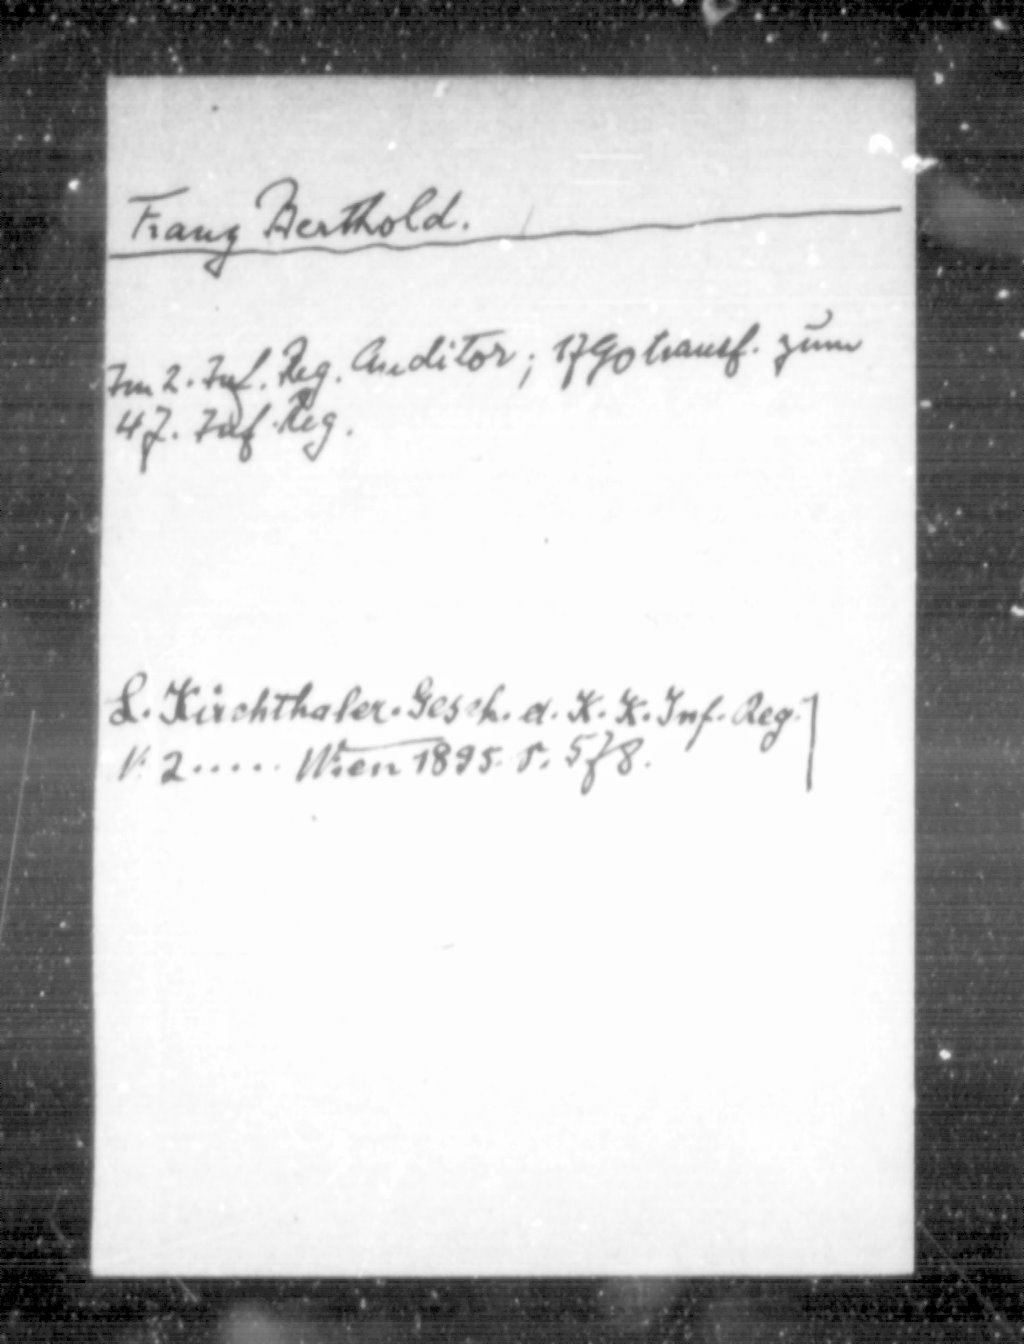 Franz Berthold.
Im 2. Inf. Reg. Auditor; 1790 transf. zum
47. Inf. Reg.
L. Kirchthaler. Gesch. d. K. K. Inf. Reg.
N: 2..... Wien 1895. S. 578.